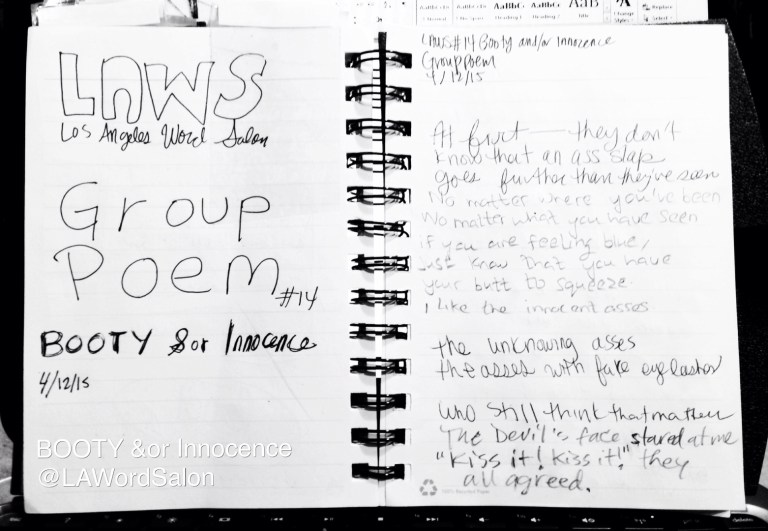 LAWS
Los Angeles Word Salon
Group
Poem
#14
BOOTY &or Innocence
4/12/15
BOOTY &or Innocence
@LAWordSalon
Laws #14 Booty and/or Innocence
Group Poem
4/12/15
At first — they don't
know that an ass slap
goes further than they've seen
No matter where you've been
No matter what you have seen
if you are feeling blue,
just know that you have
your butt to squeeze.
I like the innocent asses
the unknowing asses
the asses with fake eyelashes
who still think that matters
The Devil's face stared at me
"Kiss it! Kiss it!" they
all agreed.